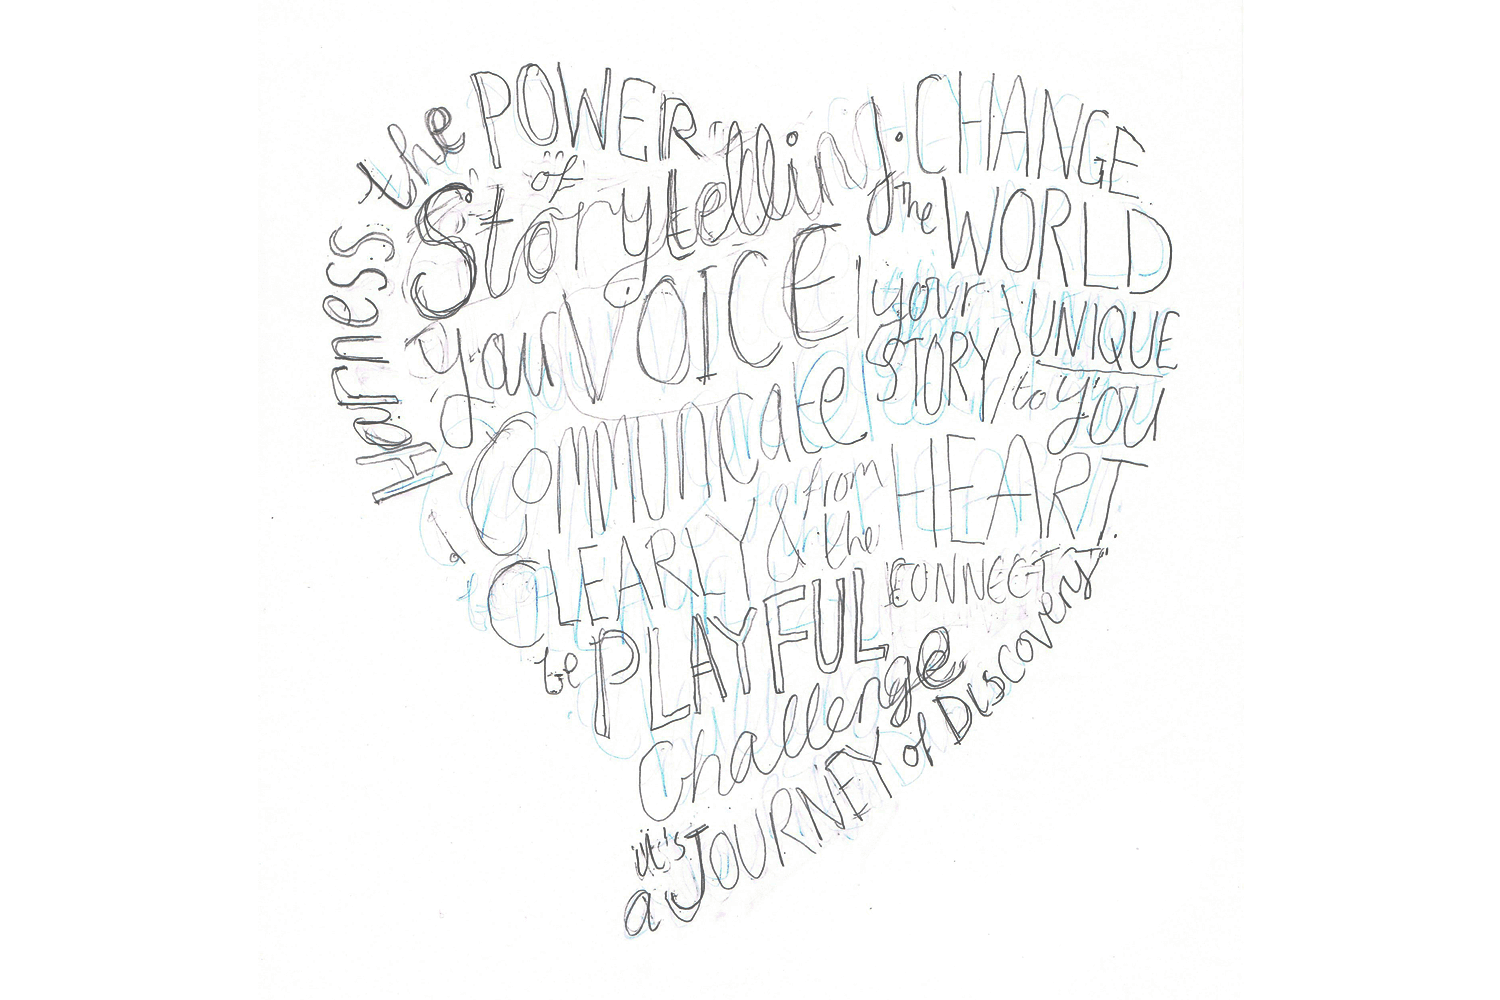 Harness the POWER
of
Storytelling.
CHANGE
the WORLD
Your VOICE
your STORY
UNIQUE
to YOU
Communicate
CLEARLY &
from the HEART
be PLAYFUL
CONNECT
Challenge
it's
a JOURNEY of Discovery